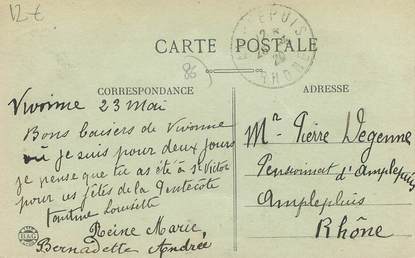 12 €
AMPLEPUIS
RHÔNE
CARTE POSTALE
86
CORRESPONDANCE
ADRESSE
Vivonne 23 Mai
Bons baisers de Vivonne
où je suis pour deux jours
je pense que tu as été à St Victor
pour les fêtes de la Pentecôte
Tantine Louisette
Reine Marie,
Bernadette Andrée
Mr Pierre Degenne
Pensionnat d'Amplepuis
Amplepuis
Rhône